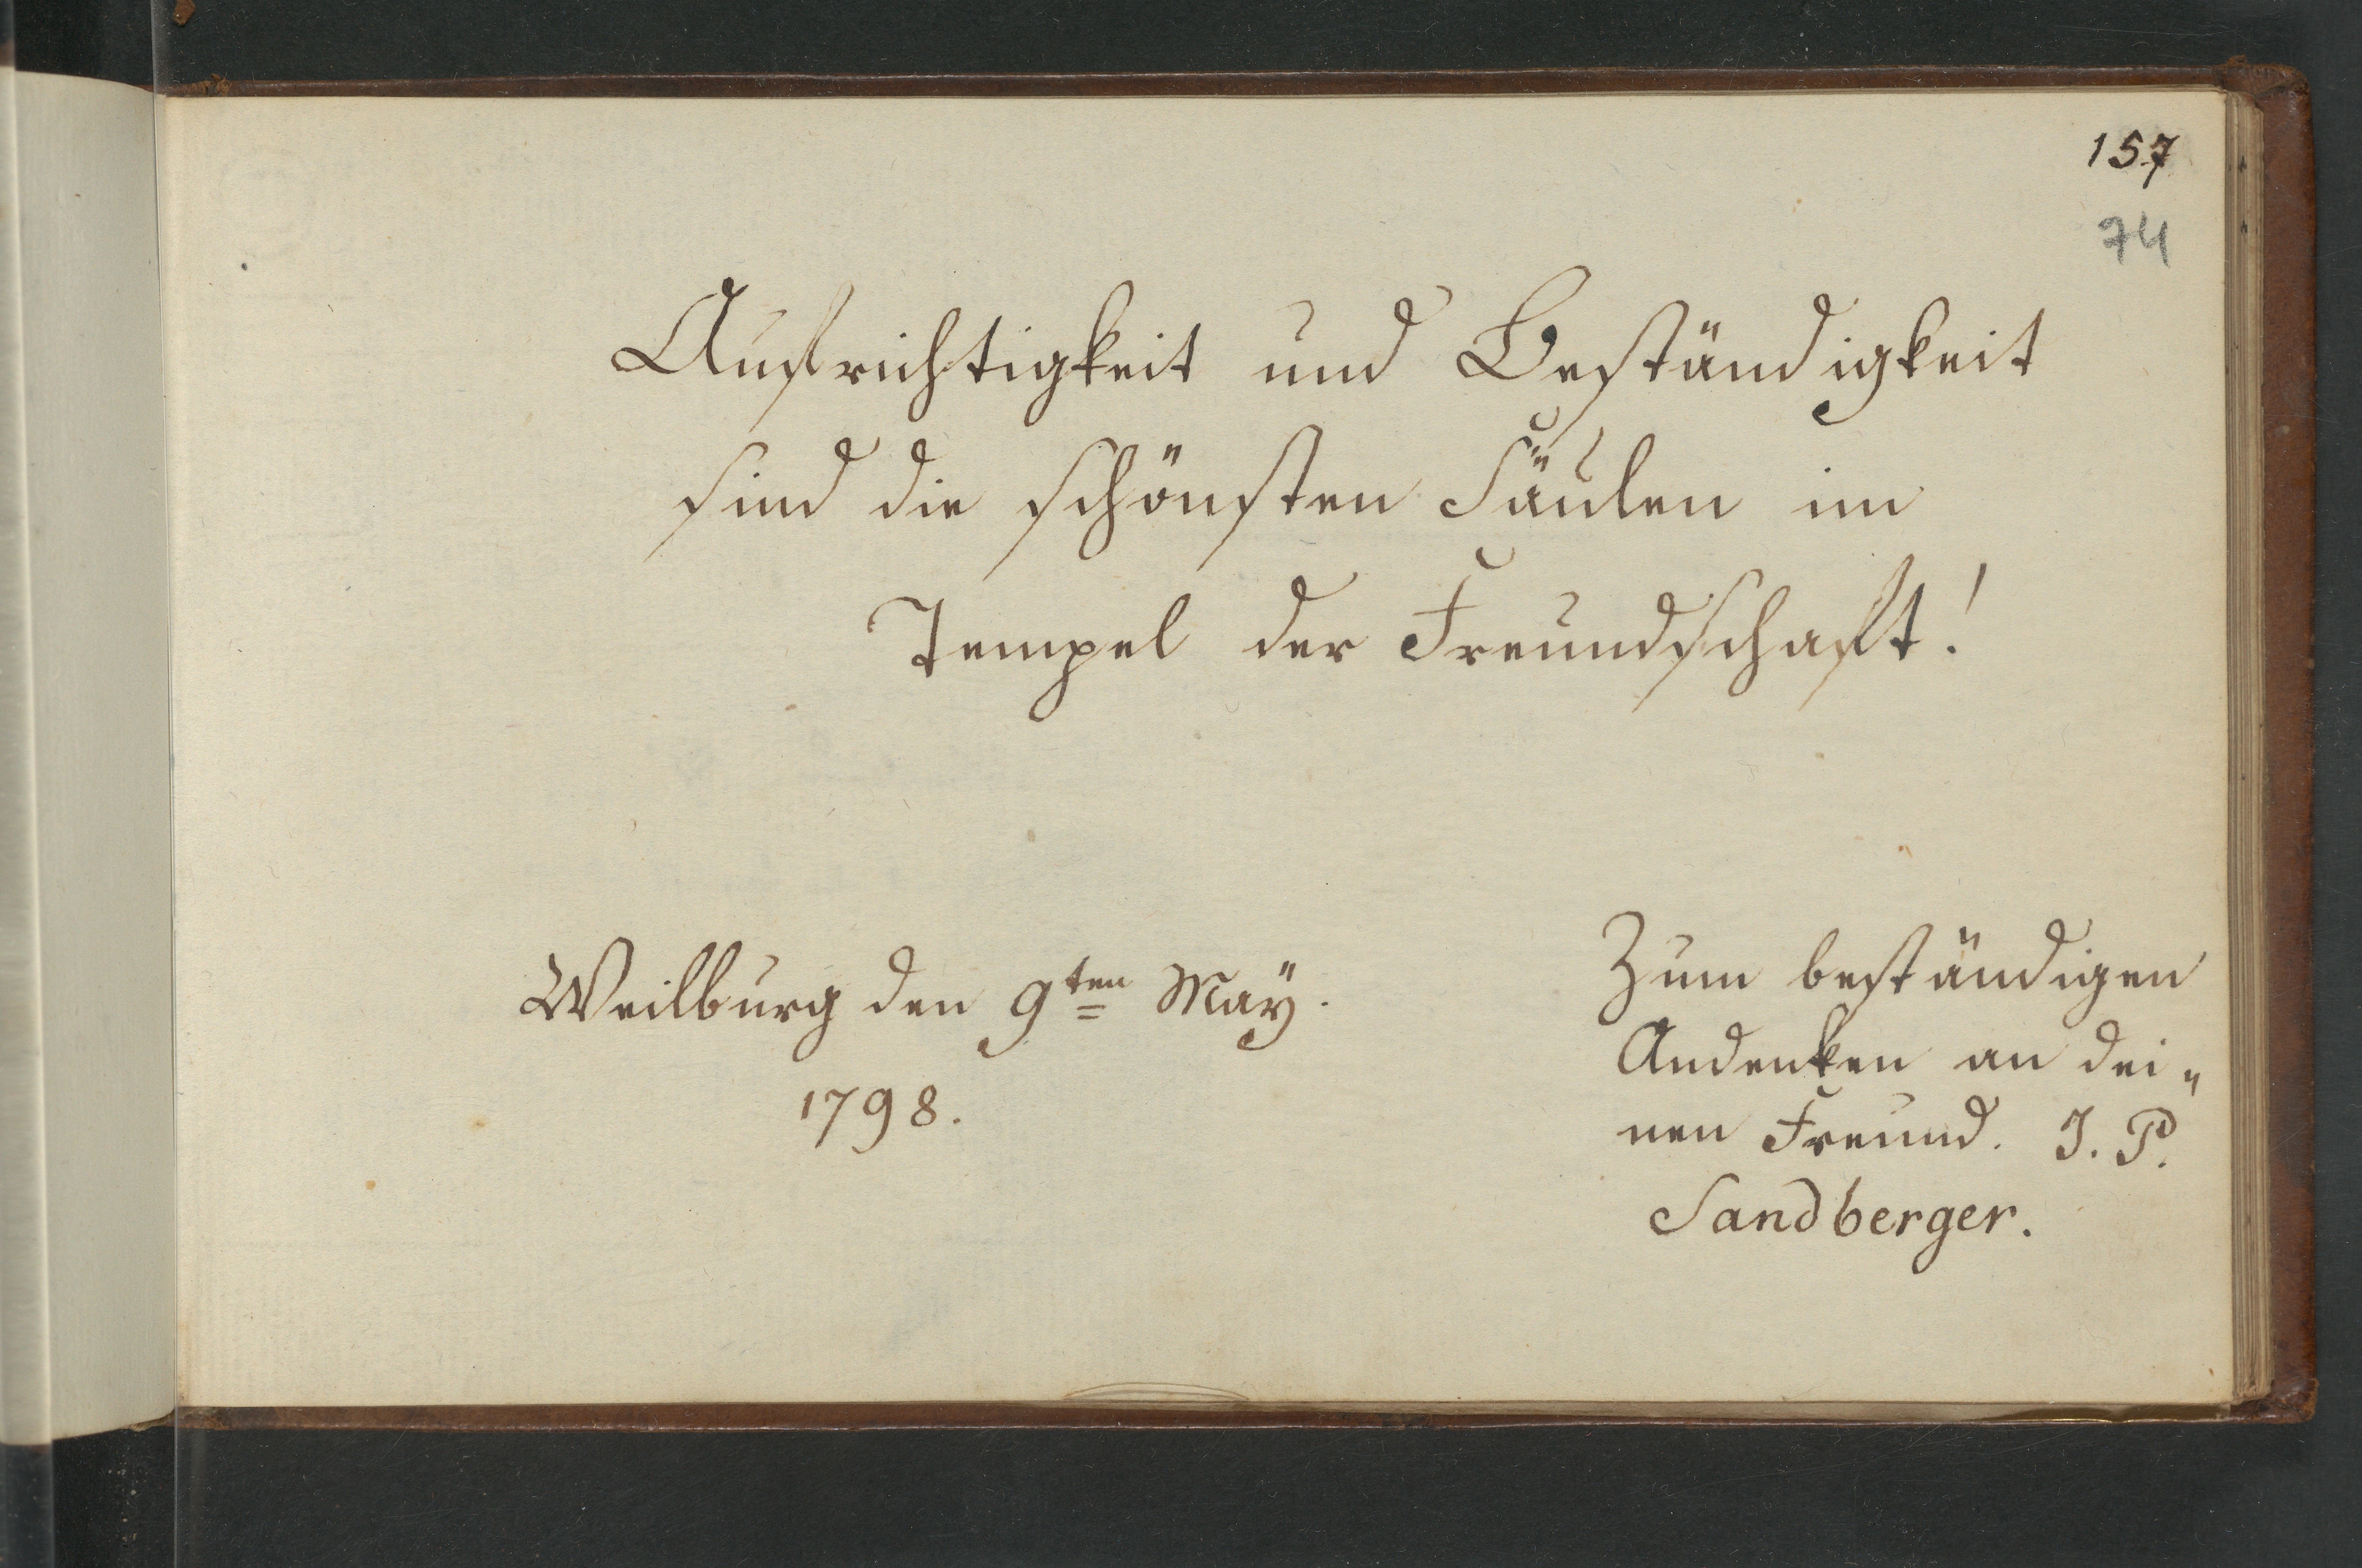 157
74
Aufrichtigkeit und Beständigkeit
sind die schönsten Säulen im
Tempel der Freundschaft!
Weilburg den 9ten Maÿ.
1798.
Zum beständigen
Andenken an dei„
nen Freund. J. P.
Sandberger.